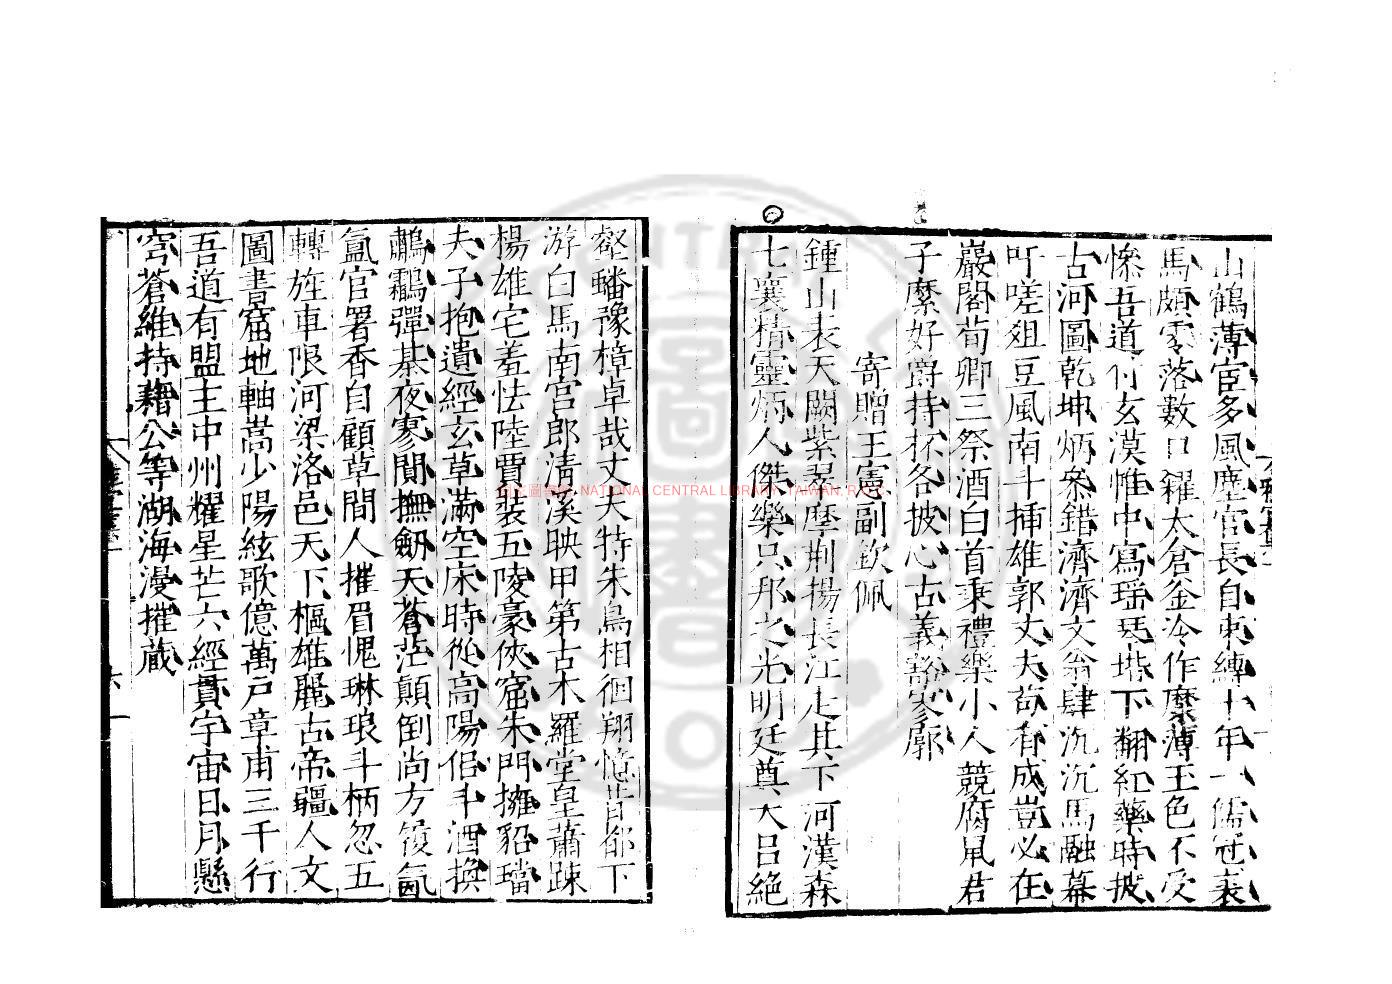 山鶴薄宦多風塵官長自束縛十年一儒冠裘
馬頗零落數口糴太倉釜冷作糜薄玉色不受
慘吾道付玄漠惟中寫瑤琴堦下翻紅藥時披
古河圖乾坤炳叅錯濟濟文翁肆沉沉馬融幕
吁嗟俎豆風南斗挿雄郭丈夫苟有成豈必在
巖閣荀卿三祭酒白首秉禮樂小人競腐鼠君
子縻好爵持杯各披心古義豁寥廓
寄贈王憲副欽佩
鍾山表天闕紫翠摩荆揚長江走其下河漢森
七襄精靈炳人傑樂只邦之光明廷尊大呂絶
壑蟠豫樟卓哉丈夫特朱鳥相徊翔憶昔都下
游白馬南宫郎清溪映甲第古木羅堂皇蕭踈
楊雄宅羞怯陸賈裝五陵豪俠窟朱門擁貂璫
夫子抱遺經玄草滿空床時從高陽侣斗酒換
鷫鸘彈棊夜寥閴撫劒天蒼茫顛倒尚方履氤
氳官署香自顧草間人摧眉愧琳琅斗柄忽五
轉旌車限河梁洛邑天下樞雄麗古帝疆人文
圖書窟地軸嵩少陽絃歌億萬戶章甫三千行
吾道有盟主中州耀星芒六經貫宇宙日月懸
穹蒼維持藉公等湖海漫摧藏
NATIONAL CENTRAL LIBRARY, TAIWAN, R.O.C.